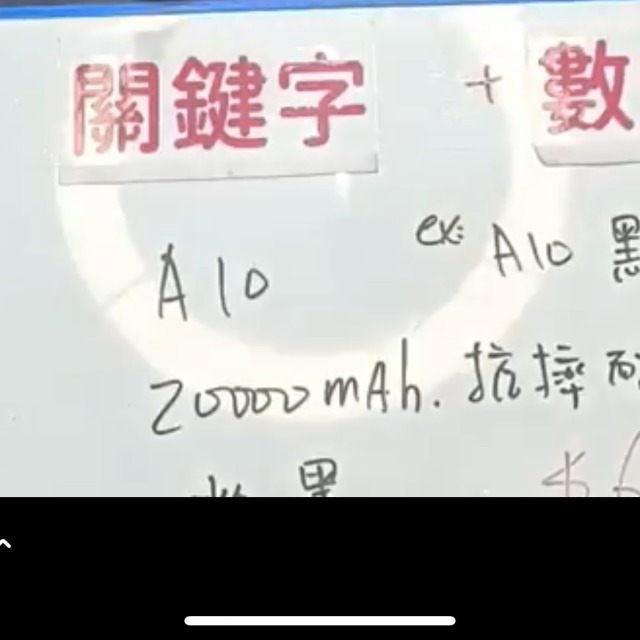 關鍵字 + 數
ex: A10 黑
A10
20000mAh. 抗摔
黑